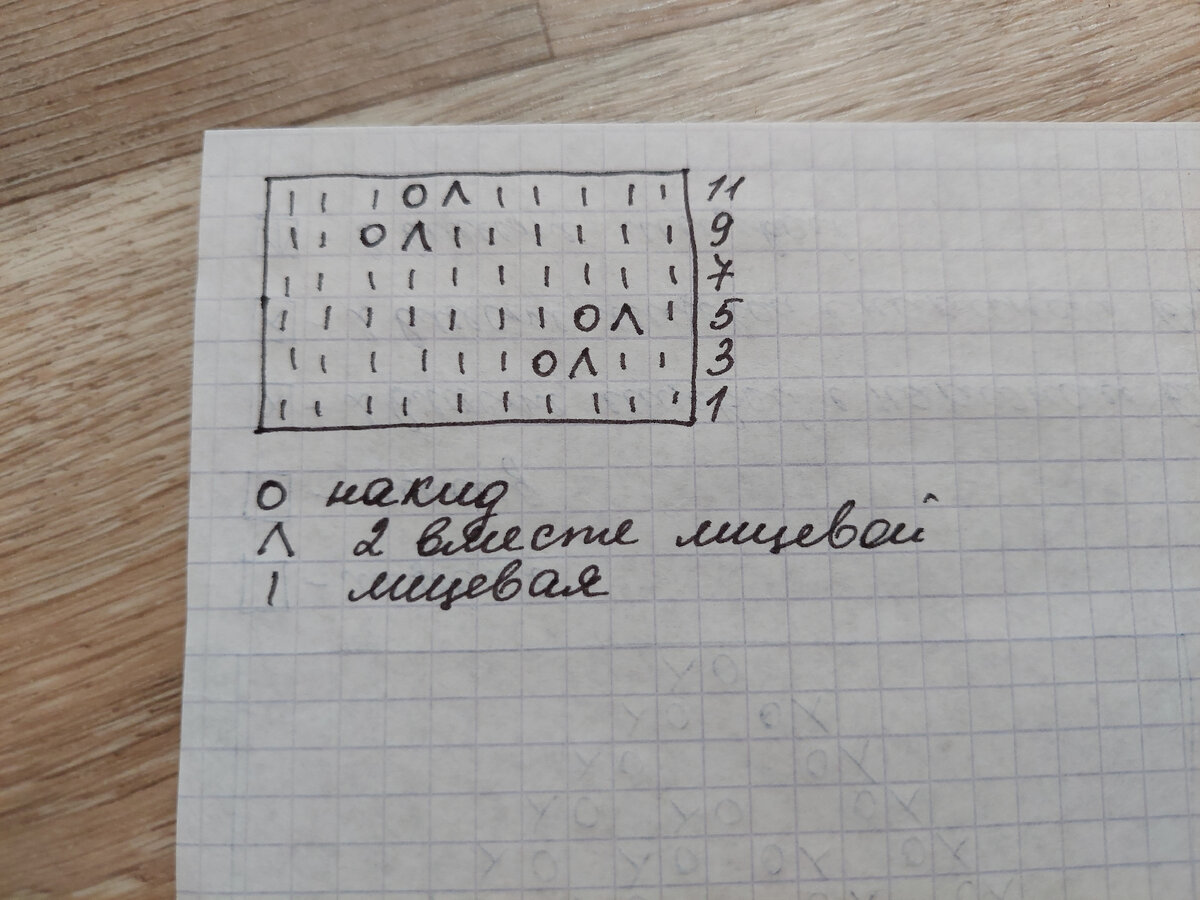 | | | O Λ | | | | | 11
| | O Λ | | | | | | 9
| | | | | | | | | | 7
| | | | | | | O Λ | 5
| | | | | | O Λ | | 3
| | | | | | | | | | 1
O накид
Λ 2 вместе лицевой
| лицевая